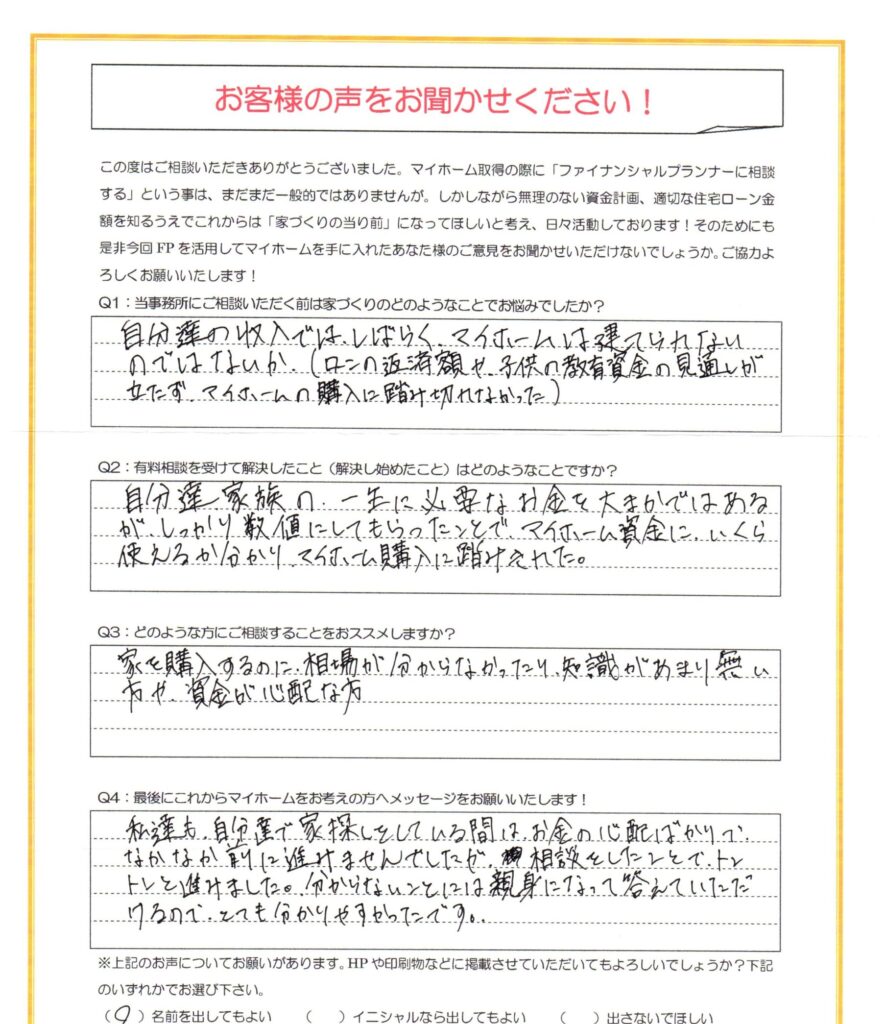 お客様の声をお聞かせください！
この度はご相談いただきありがとうございました。マイホーム取得の際に「ファイナンシャルプランナーに相談
する」という事は、まだまだ一般的ではありませんが。しかしながら無理のない資金計画、適切な住宅ローン金
額を知るうえでこれからは「家づくりの当り前」になってほしいと考え、日々活動しております！そのためにも
是非今回 FP を活用してマイホームを手に入れたあなた様のご意見をお聞かせいただけないでしょうか。ご協力よ
ろしくお願いいたします！
Q1：当事務所にご相談いただく前は家づくりのどのようなことでお悩みでしたか？
自分達の収入では、しばらく、マイホームは建てられない
のではないか、（ロンの返済額や、子供の教育資金の見通しが
立たず、マイホームの購入に踏み切れなかった）
Q2：有料相談を受けて解決したこと（解決し始めたこと）はどのようなことですか？
自分達家族の、一生に必要なお金を大まかではある
が、しっかり数値にしてもらったことで、マイホーム資金に、いくら
使えるか分かり、マイホーム購入に踏みきれた。
Q3：どのような方にご相談することをおススメしますか？
家を購入するのに、相場が分からなかったり、知識があまり無い
方や、資金が心配な方
Q4：最後にこれからマイホームをお考えの方へメッセージをお願いいたします！
私達も、自分達で家探しをしている間は、お金の心配ばかりで、
なかなか前に進みませんでしたが、相談をしたことで、トン
トンと進みました。分からないことには親身になって答えていただ
けるので、とても分かりやすかったです。
※上記のお声についてお願いがあります。HP や印刷物などに掲載させていただいてもよろしいでしょうか？下記
のいずれかでお選び下さい。
（○）名前を出してもよい　（　）イニシャルなら出してもよい　（　）出さないでほしい